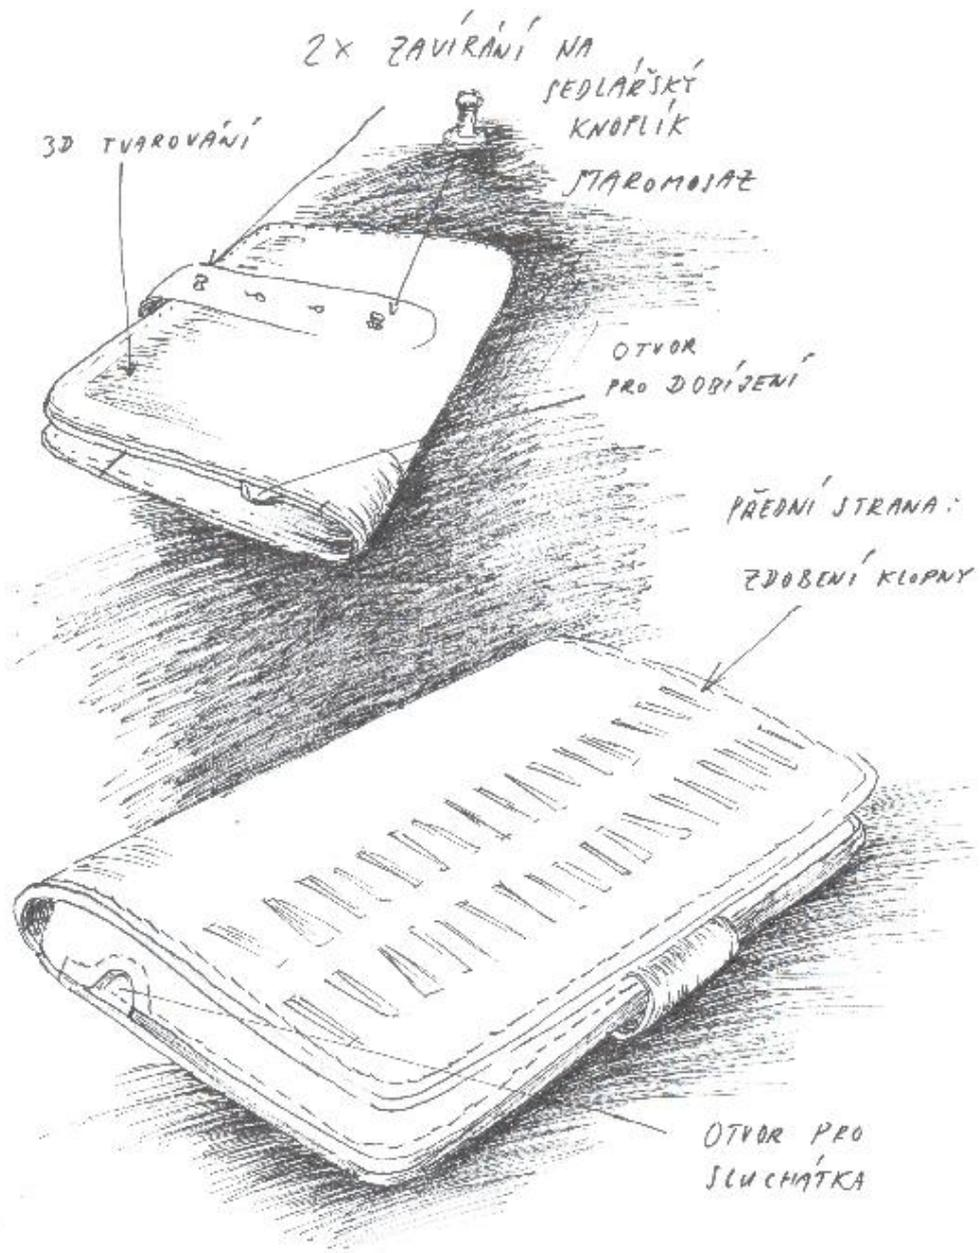 2X ZAVÍRÁNÍ NA
SEDLÁŘSKÝ
KNOFLÍK
STAROMOSAZ
3D TVAROVÁNÍ
OTVOR
PRO DOBÍJENÍ
PŘEDNÍ STRANA:
ZDOBENÍ KLOPNY
OTVOR PRO
SLUCHÁTKA